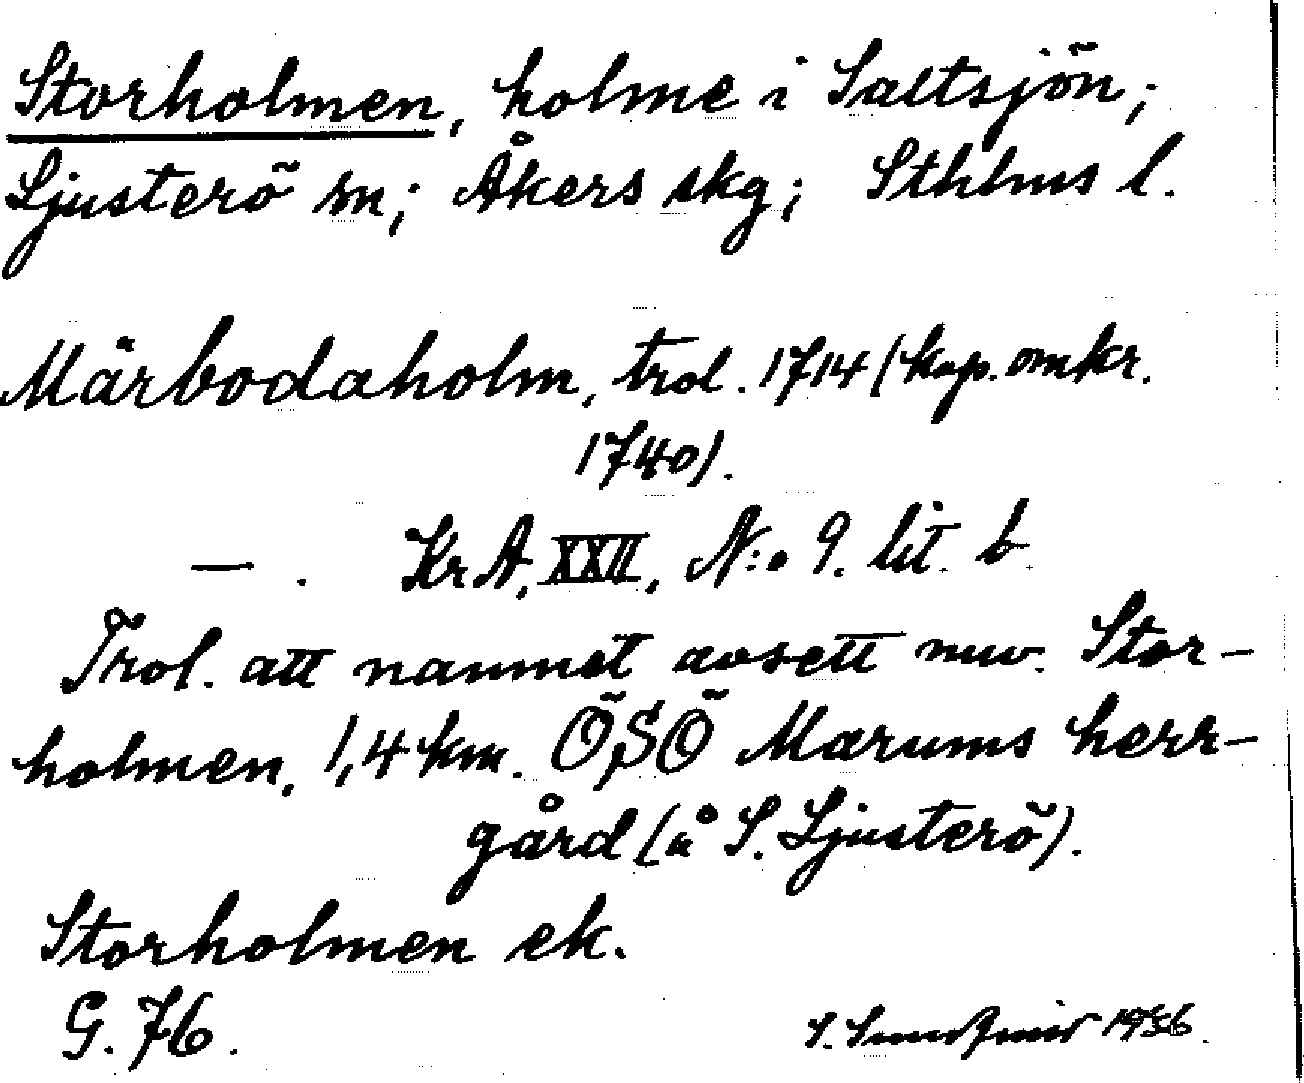 Storholmen, holme i Saltsjön;
Ljusterö sn; Åkers skg; Sthlms l.
Märbodaholm, trol. 1714 (kop. omkr.
1740).
— . KrA, XXII, N:o 9. lit. b.
Trol. att namnet avsett nuv. Stor-
holmen, 1,4 km. ÖSÖ Marums herr-
gård (å S. Ljusterö).
Storholmen ek.
G. 76.
S. 1936.